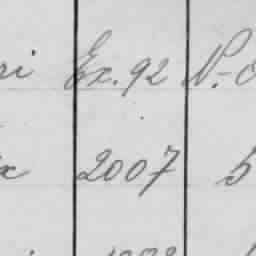 ri Ex. 92 N.-
x 2007 5